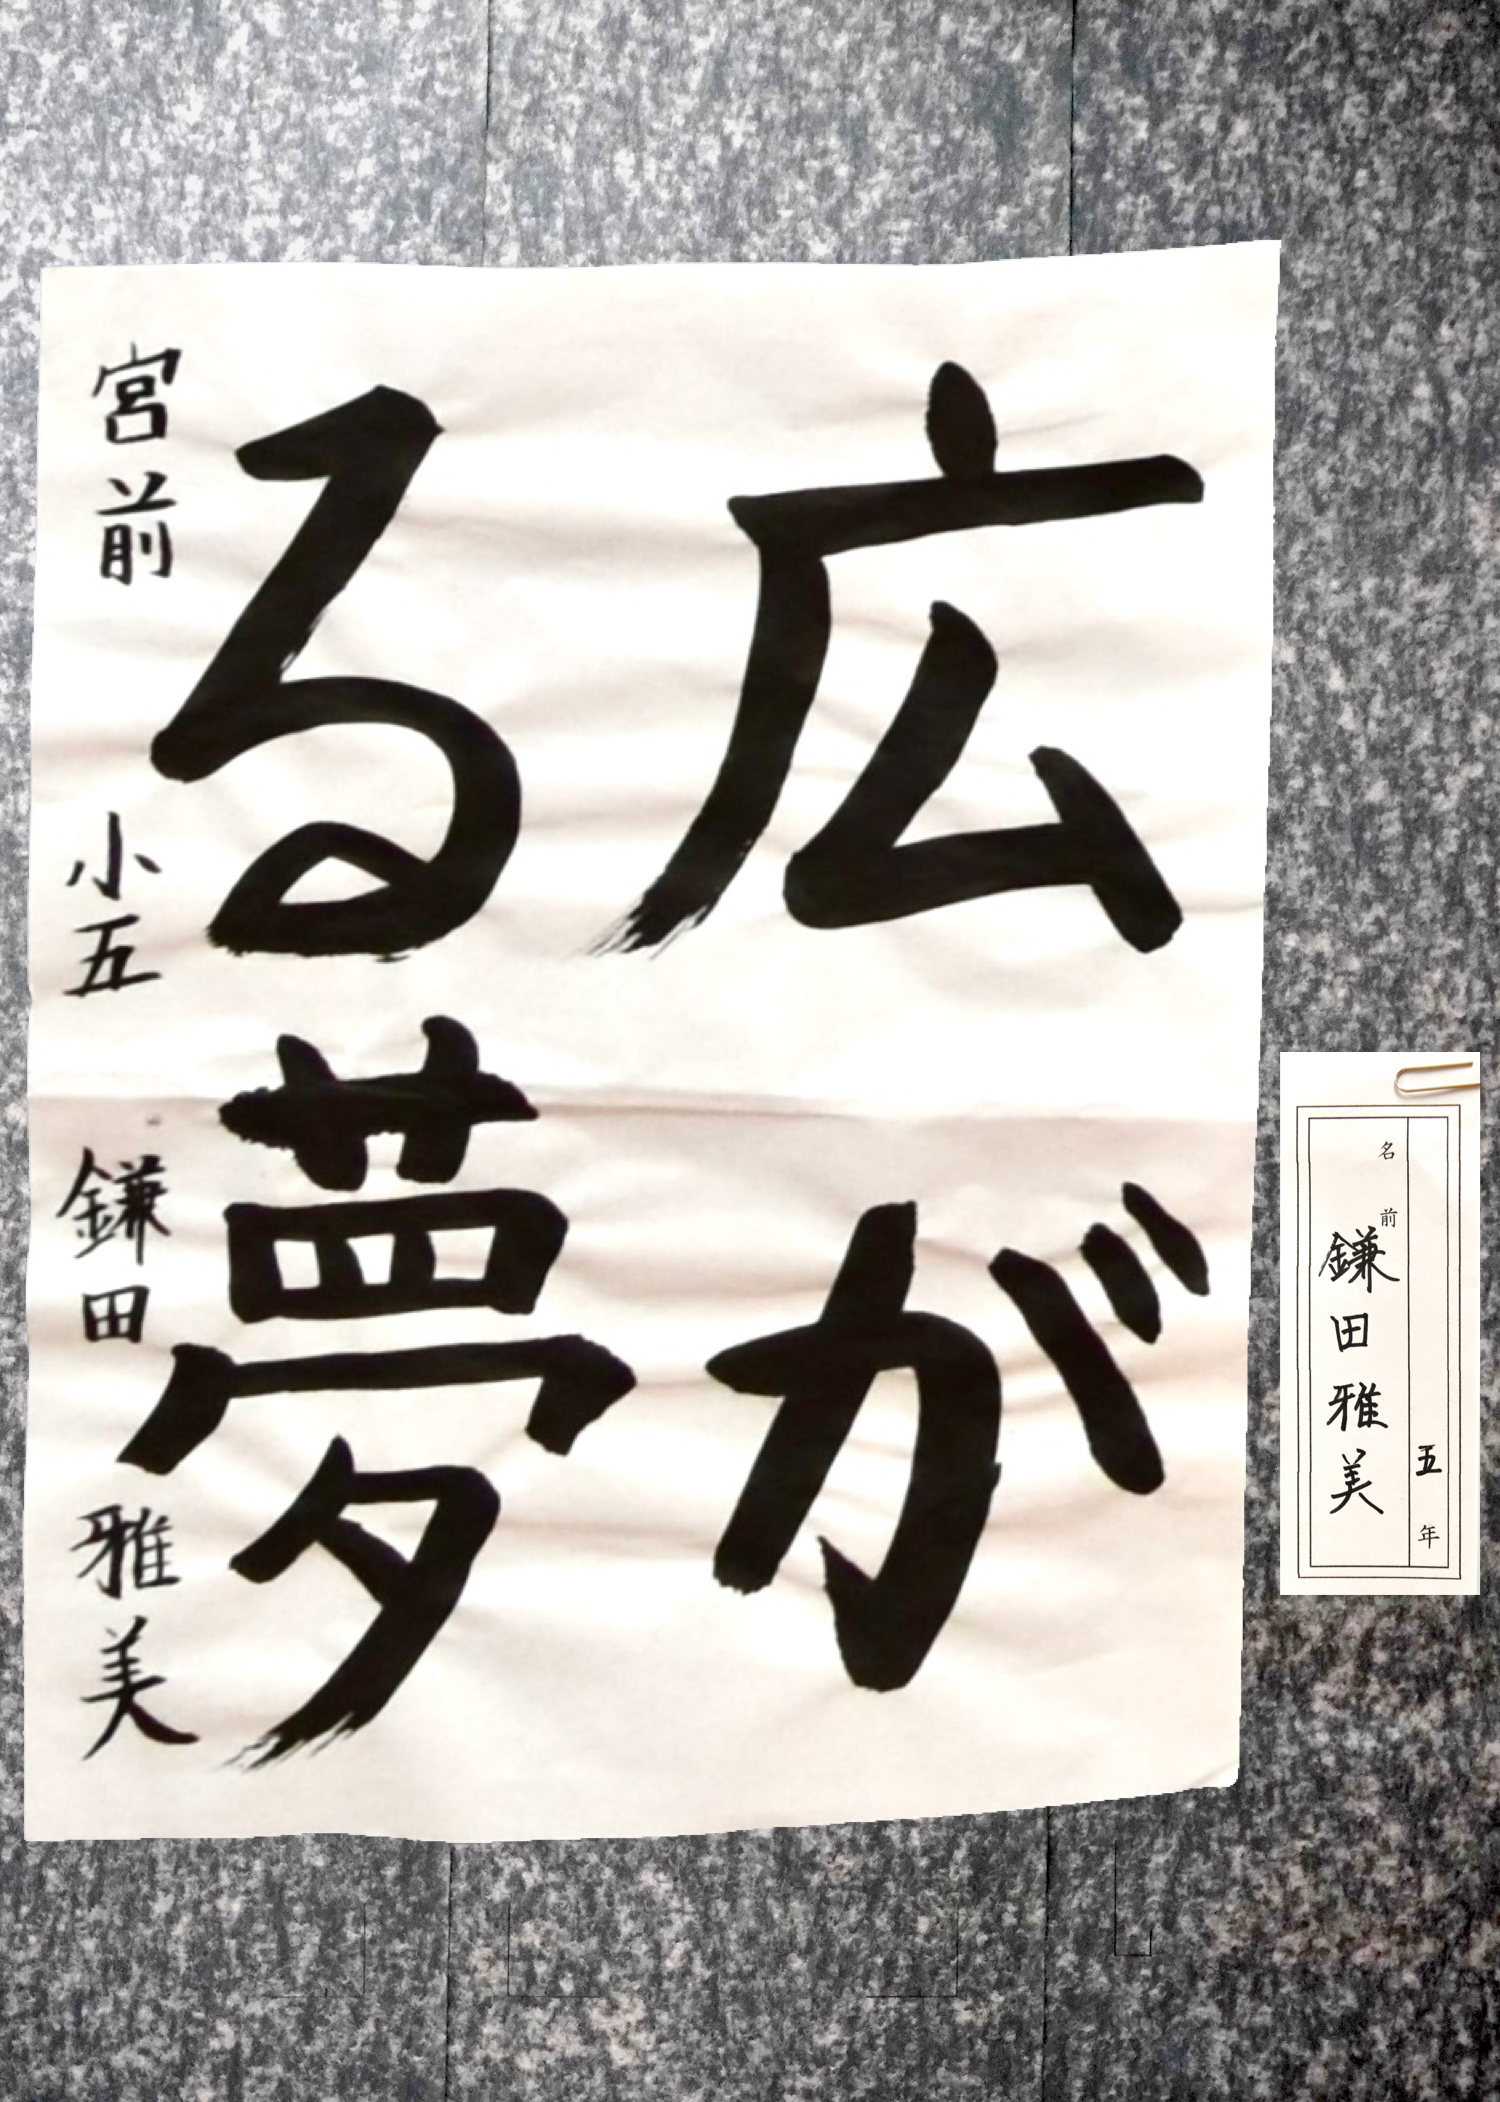 広が
る夢
宮前 小五 鎌田 雅美
五年
名前
鎌田雅美